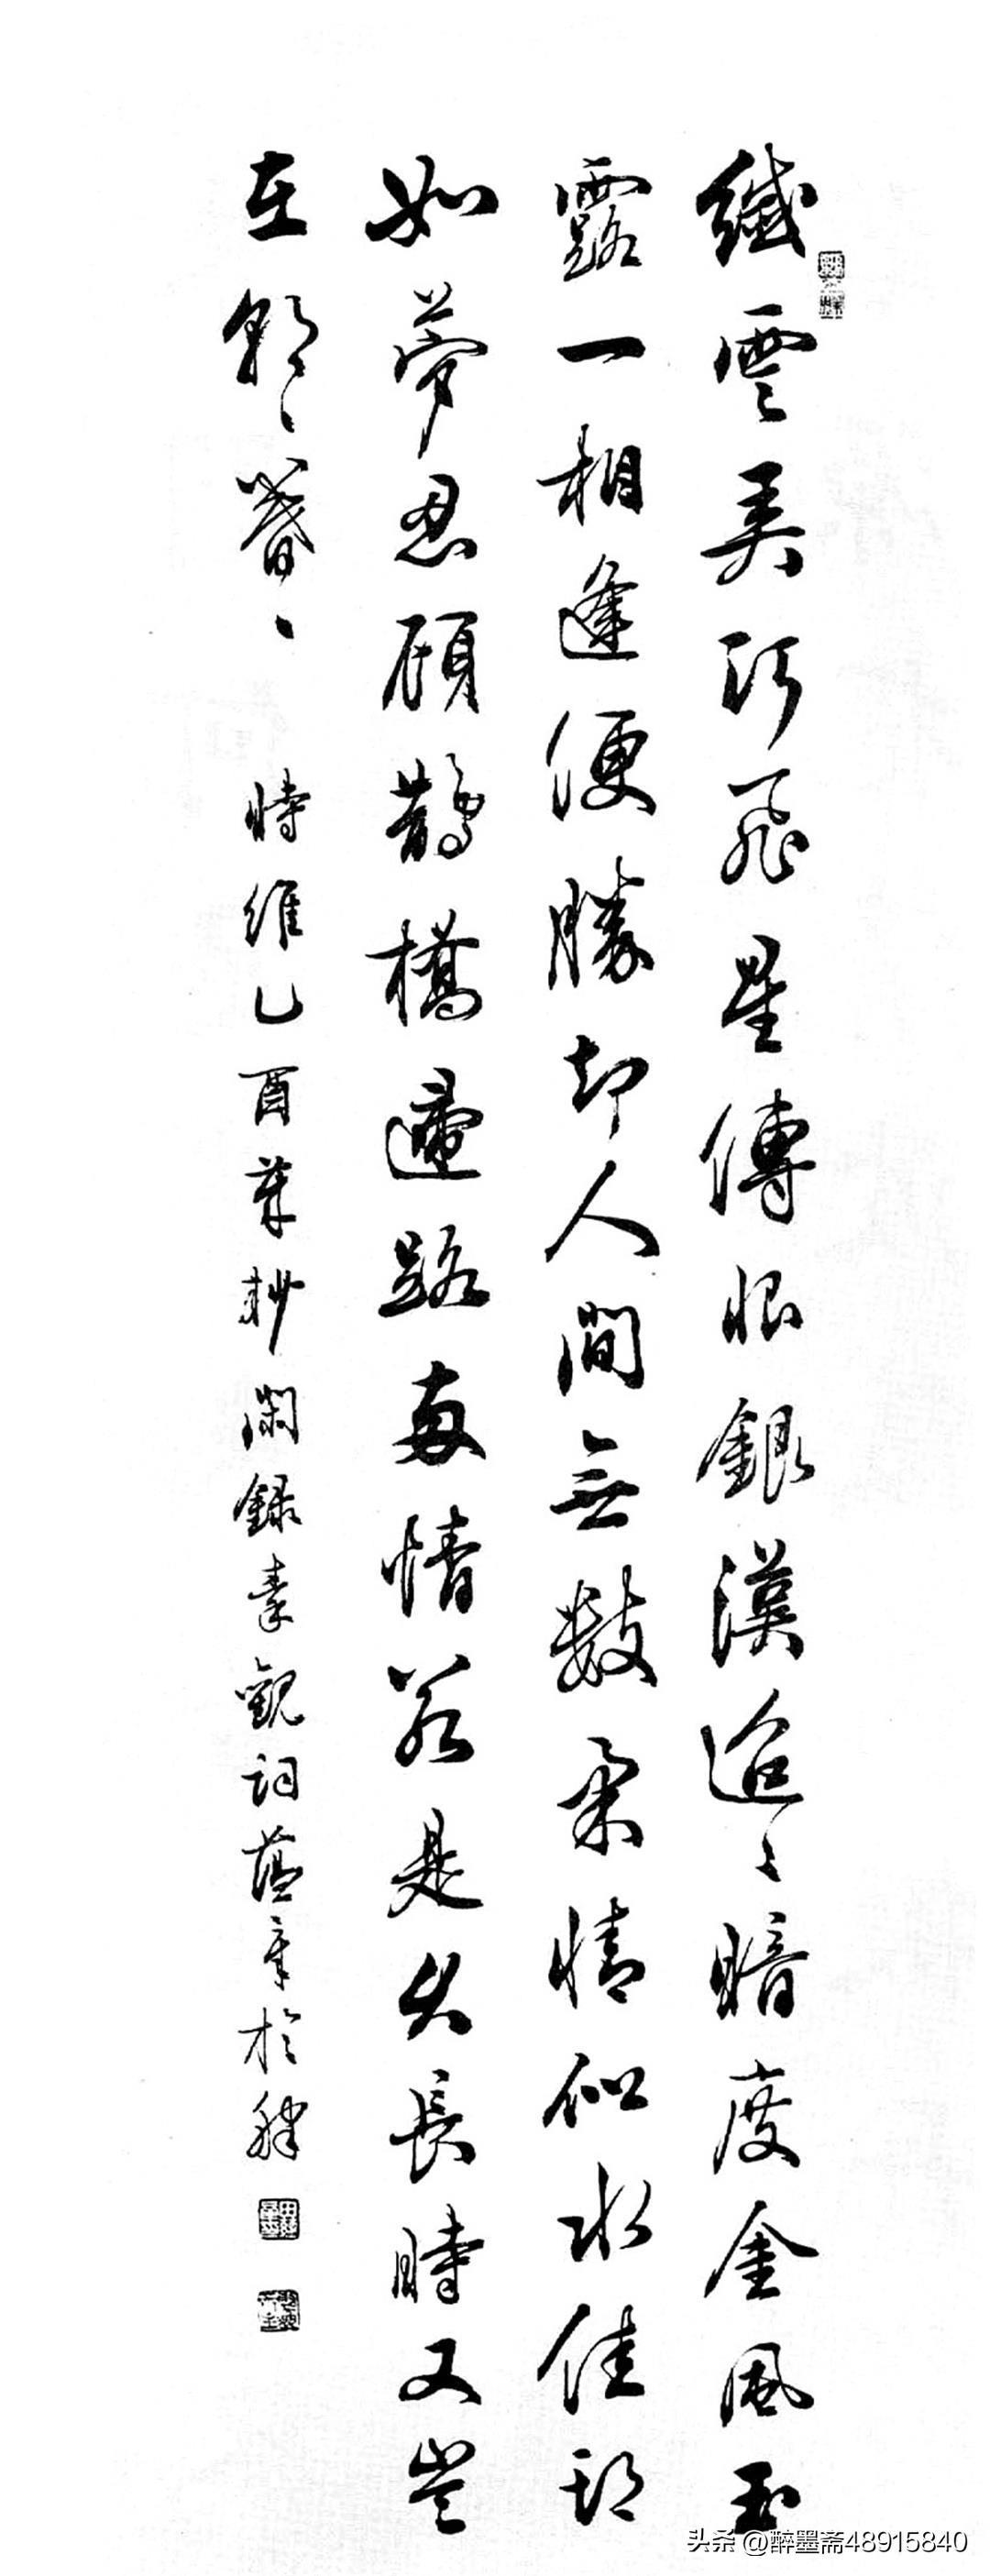 纖雲弄巧飛星傳恨銀漢迢〻暗度金風玉
露一相逢便勝却人間無數柔情似水佳期
如夢忍顧鵲橋歸路兩情若是久長時又豈
在朝〻暮〻 時維乙酉閑錄秦觀詞於
头条 @醉墨斋48915840